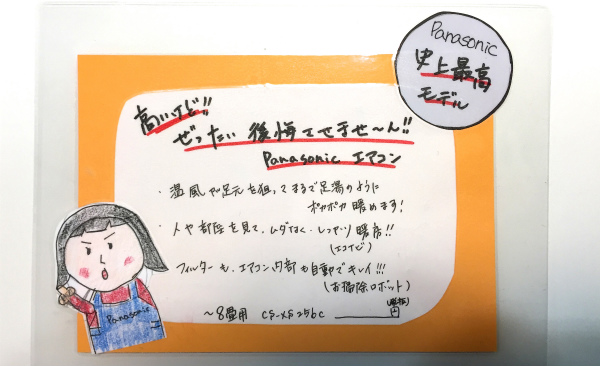 Panasonic
史上最高
モデル
高いけど!!
ぜったい 後悔させませ〜ん!!
Panasonic エアコン
・温風が足元を狙ってまるで足湯のように
ポカポカ暖めます!
・人や部屋を見て、ムダなく、しっかり暖房!!
(エコナビ)
・フィルターも、エアコン内部も自動でキレイ!!!
(お掃除ロボット)
〜8畳用 CS-XS256C
Panasonic